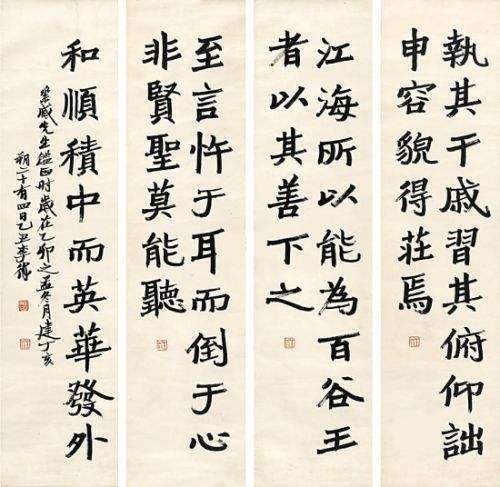 執其干戚習其俯仰詘
申容貌得莊焉
江海所以能為百谷王
者以其善下之
至言忤于耳而倒于心
非賢聖莫能聽
和順積中而英華發外
先生鑑正時歲在乙卯之孟冬月建丁亥
朔二十有四日乙丑李